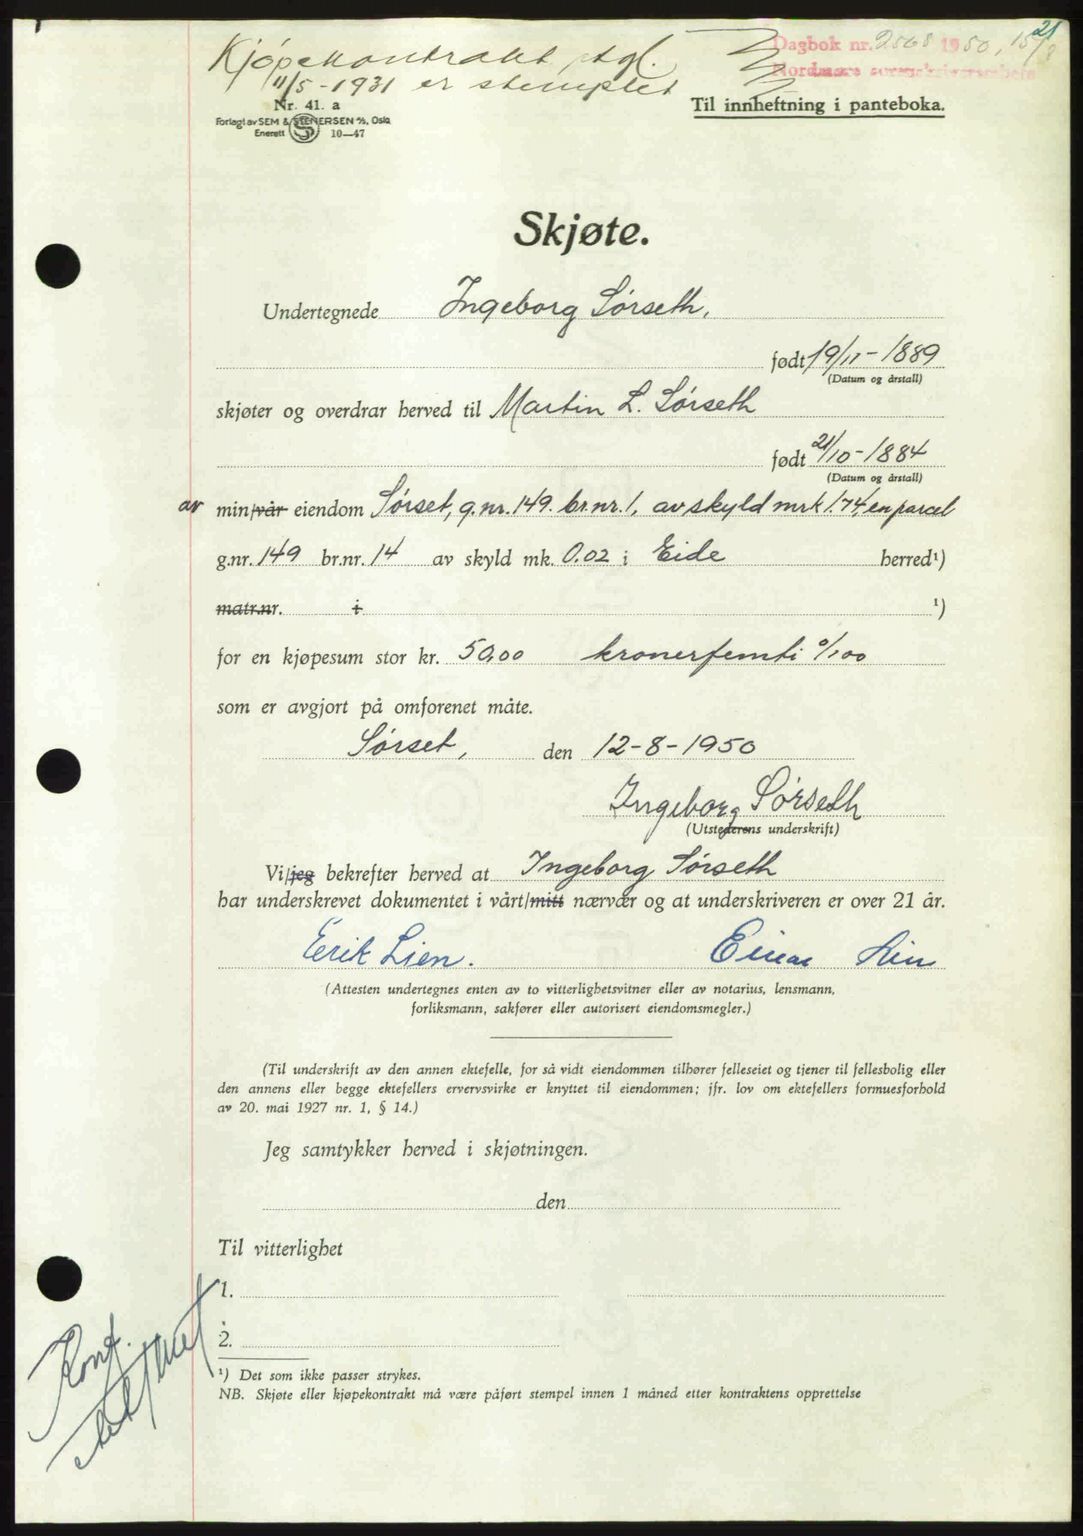 21
Kjøpekontrakt dtgl.
Dagbok nr. 2568 1950, 15/8
11/5 - 1931 er stemplet
Nordmøre sorenskriverembete
Nr. 41. a
Til innheftning i panteboka.
Forlagt av SEM & STENERSEN A/S, Oslo
Enerett 10—47
Skjøte.
Undertegnede Ingeborg Sørseth,
født 19/11 - 1889
(Datum og årstall)
skjøter og overdrar herved til Martin L. Sørseth
født 21/10 - 1884
(Datum og årstall)
av min/vår eiendom Sørset, g.nr. 149. br.nr. 1, av skyld mrk 1.74, en parcel
g.nr. 149 br.nr. 14 av skyld mk. 0.02 i Eide herred¹)
matr.nr. i ¹)
for en kjøpesum stor kr. 50,00 kronerfemti 0/100
som er avgjort på omforenet måte.
Sørset, den 12-8-1950
Ingeborg Sørseth
(Utstederens underskrift)
Vi/jeg bekrefter herved at Ingeborg Sørseth
har underskrevet dokumentet i vårt/mitt nærvær og at underskriveren er over 21 år.
Erik Lien. Einar Lien
(Attesten undertegnes enten av to vitterlighetsvitner eller av notarius, lensmann,
forliksmann, sakfører eller autorisert eiendomsmegler.)
(Til underskrift av den annen ektefelle, for så vidt eiendommen tilhører felleseiet og tjener til fellesbolig eller
den annens eller begge ektefellers ervervsvirke er knyttet til eiendommen; jfr. lov om ektefellers formuesforhold
av 20. mai 1927 nr. 1, § 14.)
Jeg samtykker herved i skjøtningen.
den
Til vitterlighet
1.
2.
Konf.
¹) Det som ikke passer strykes.
NB. Skjøte eller kjøpekontrakt må være påført stempel innen 1 måned etter kontraktens opprettelse